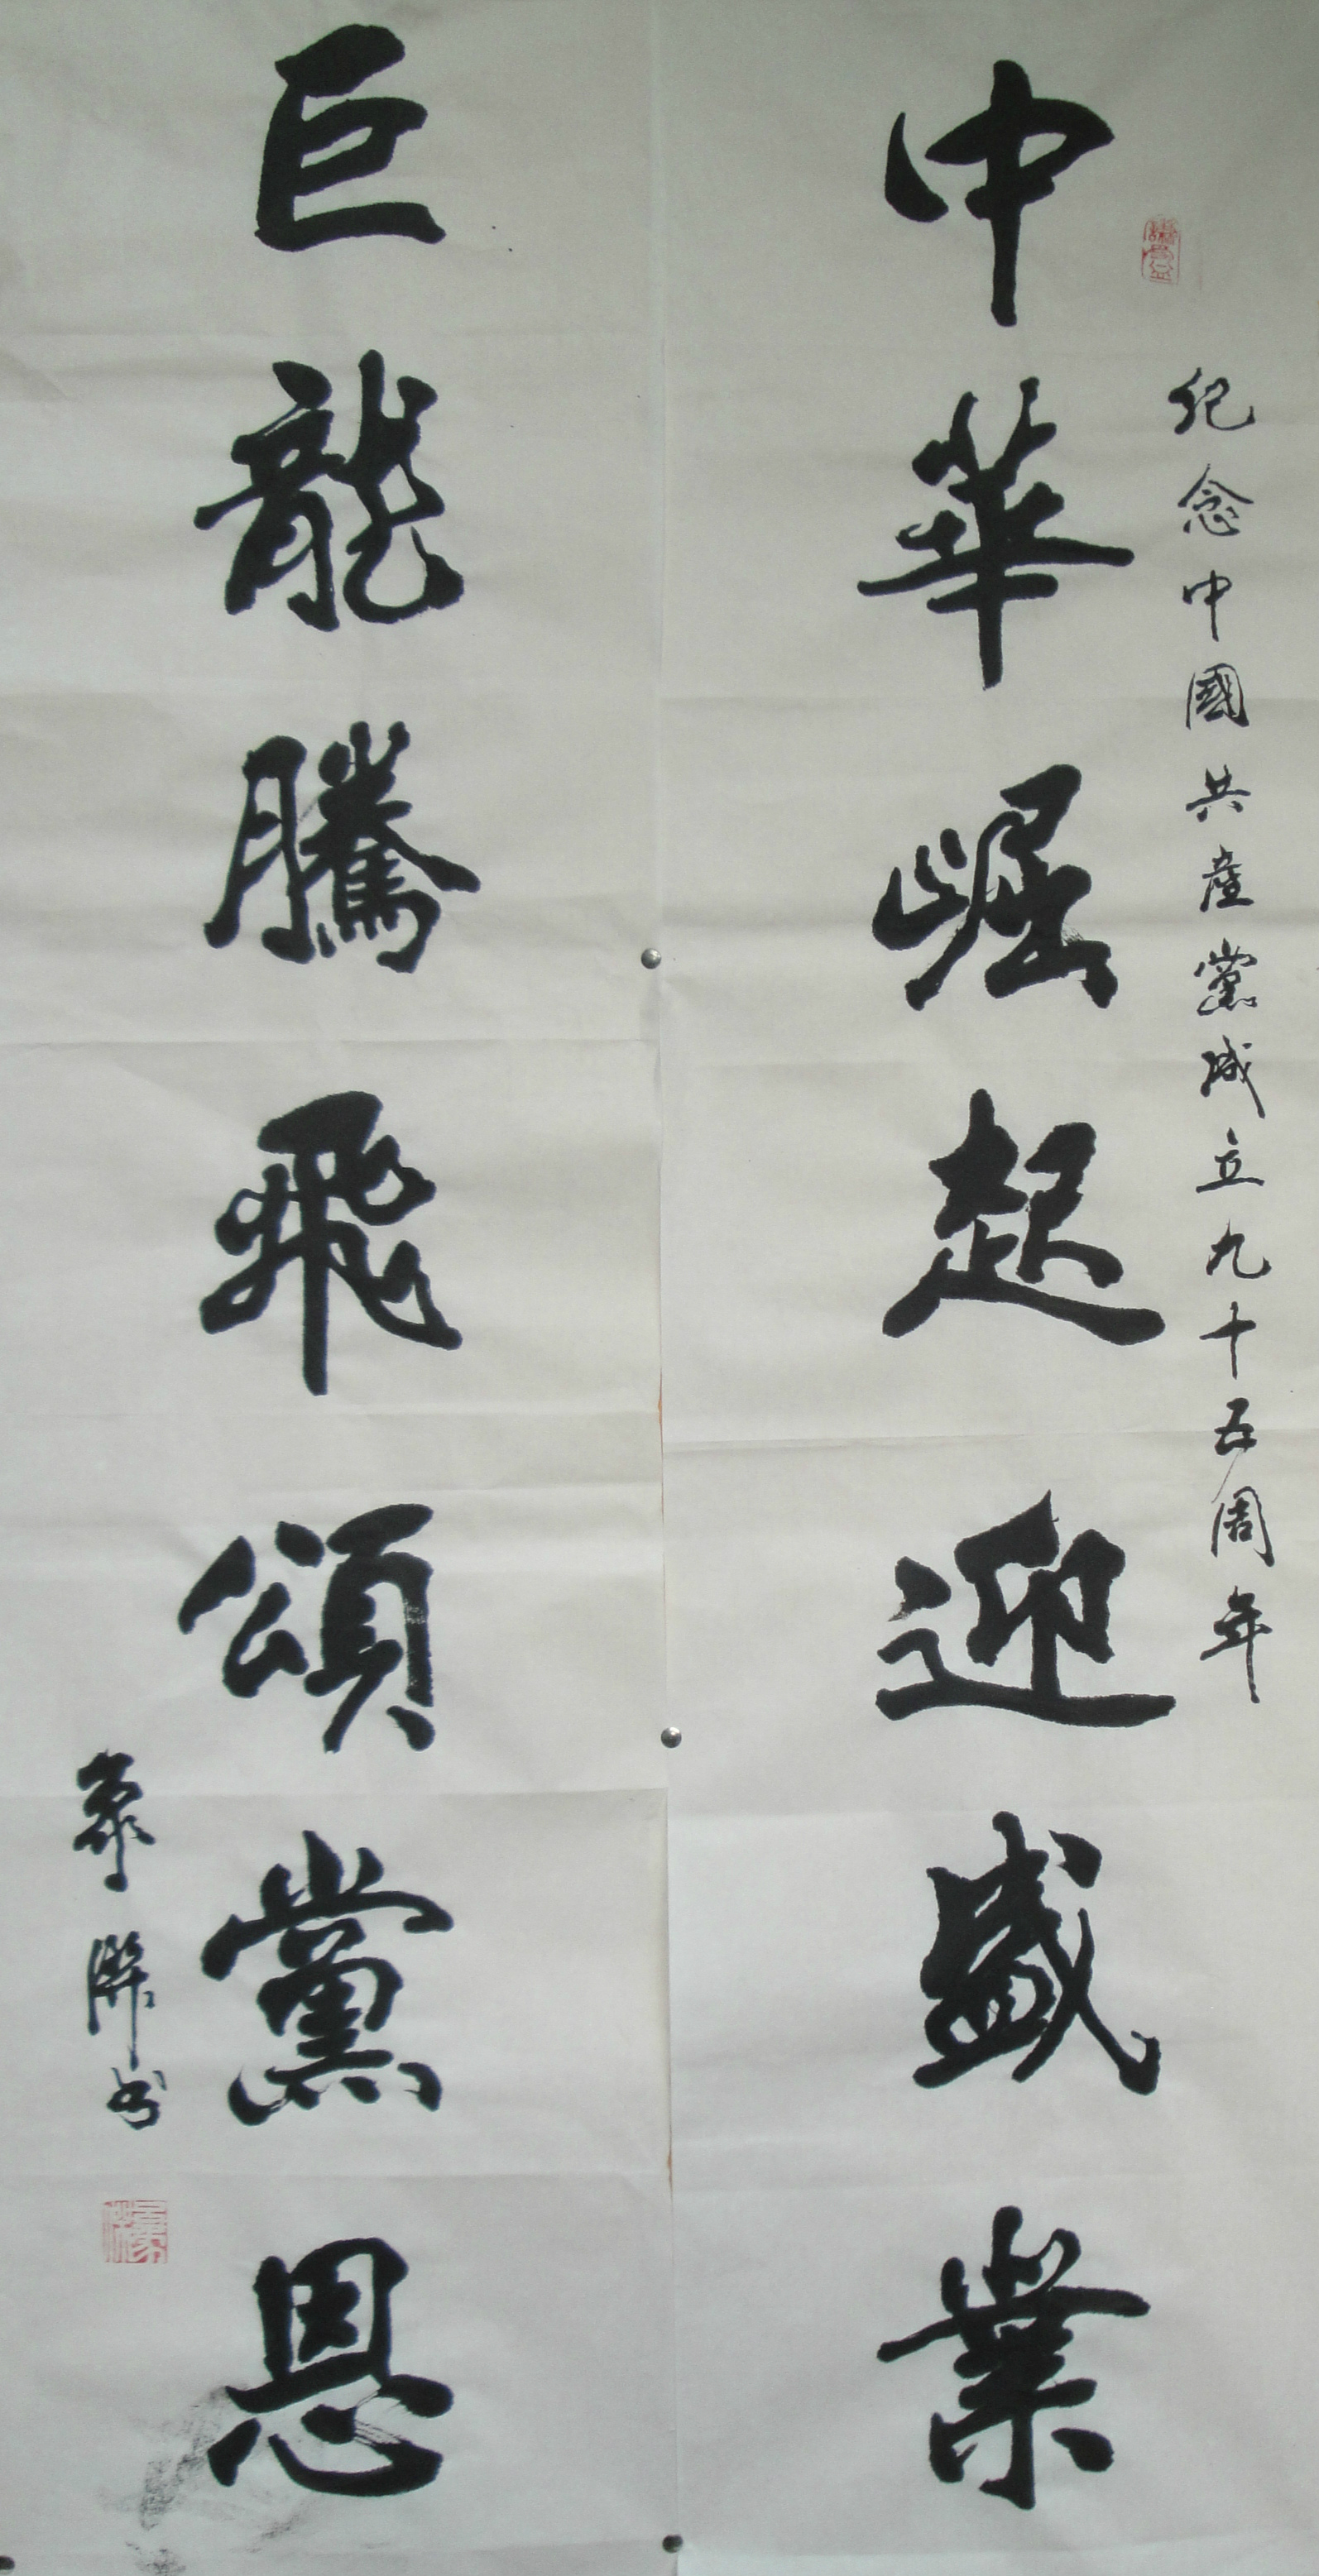 紀念中國共產黨成立九十五周年
中華崛起迎盛業
巨龍騰飛頌黨恩
書